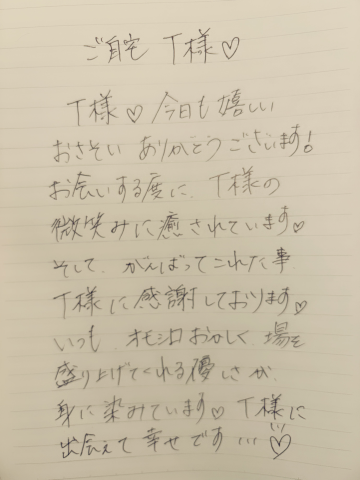 ご自宅 T様♡
T様♡今日も嬉しい
おさそい ありがとうございます!
お会いする度に、T様の
微笑みに癒されています♡
そして、がんばってこれた事
T様に感謝しております♡
いつも、オモシロおかしく、場を
盛り上げてくれる優しさが、
身に染みています♡ T様に
出会えて幸せです…♡